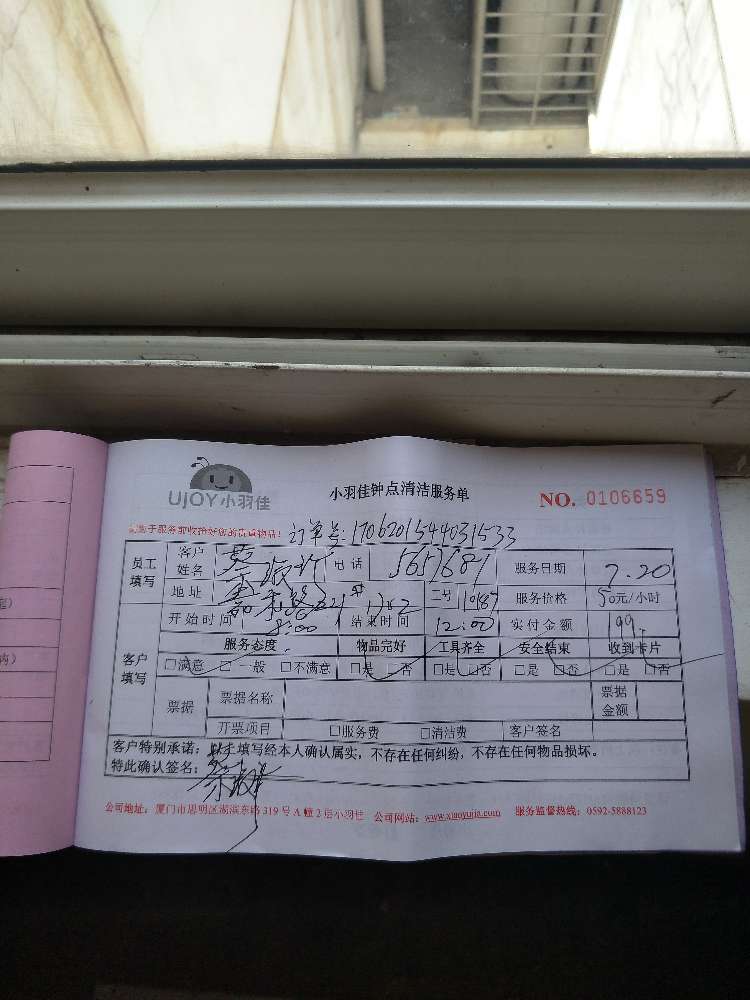 UJOY小羽佳
小羽佳钟点清洁服务单
NO. 0106659
订单号:1706201544031533
员工填写 客户姓名 电话 5657687 服务日期 7.20
地址 工号 10187 服务价格 50元/小时
开始时间 8:00 结束时间 12:00 实付金额 199
客户填写 服务态度 物品完好 工具齐全 安全结束 收到卡片
□满意 □一般 □不满意 □是 □否 □是 □否 □是 □否 □是 □否
票据 票据名称 票据金额
开票项目 □服务费 □清洁费 客户签名
客户特别承诺：以上填写经本人确认属实，不存在任何纠纷，不存在任何物品损坏。
特此确认签名：
公司地址：厦门市思明区湖滨东路319号A幢2层小羽佳 公司网站：www.xiaoyujia.com 服务监督热线：0592-5888123